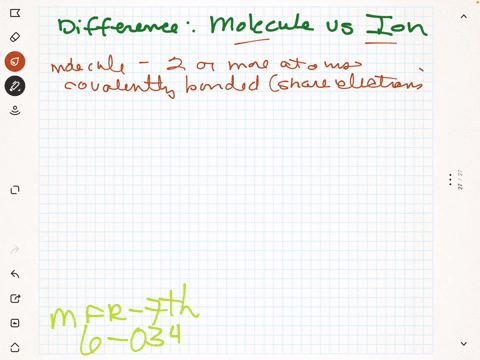 Difference: Molecule vs Ion
molecule - 2 or more atoms
covalently bonded (share electrons
MFR-7th
6-034
37 / 37